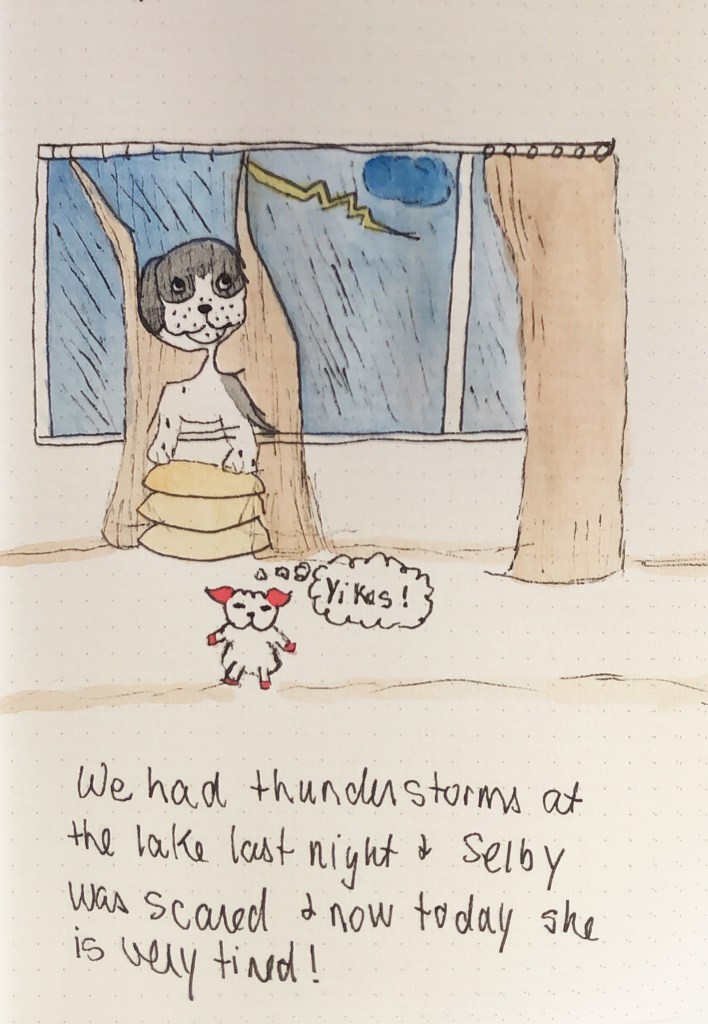 Yikes!
We had thunderstorms at
the lake last night & Selby
was scared & now today she
is very tired!